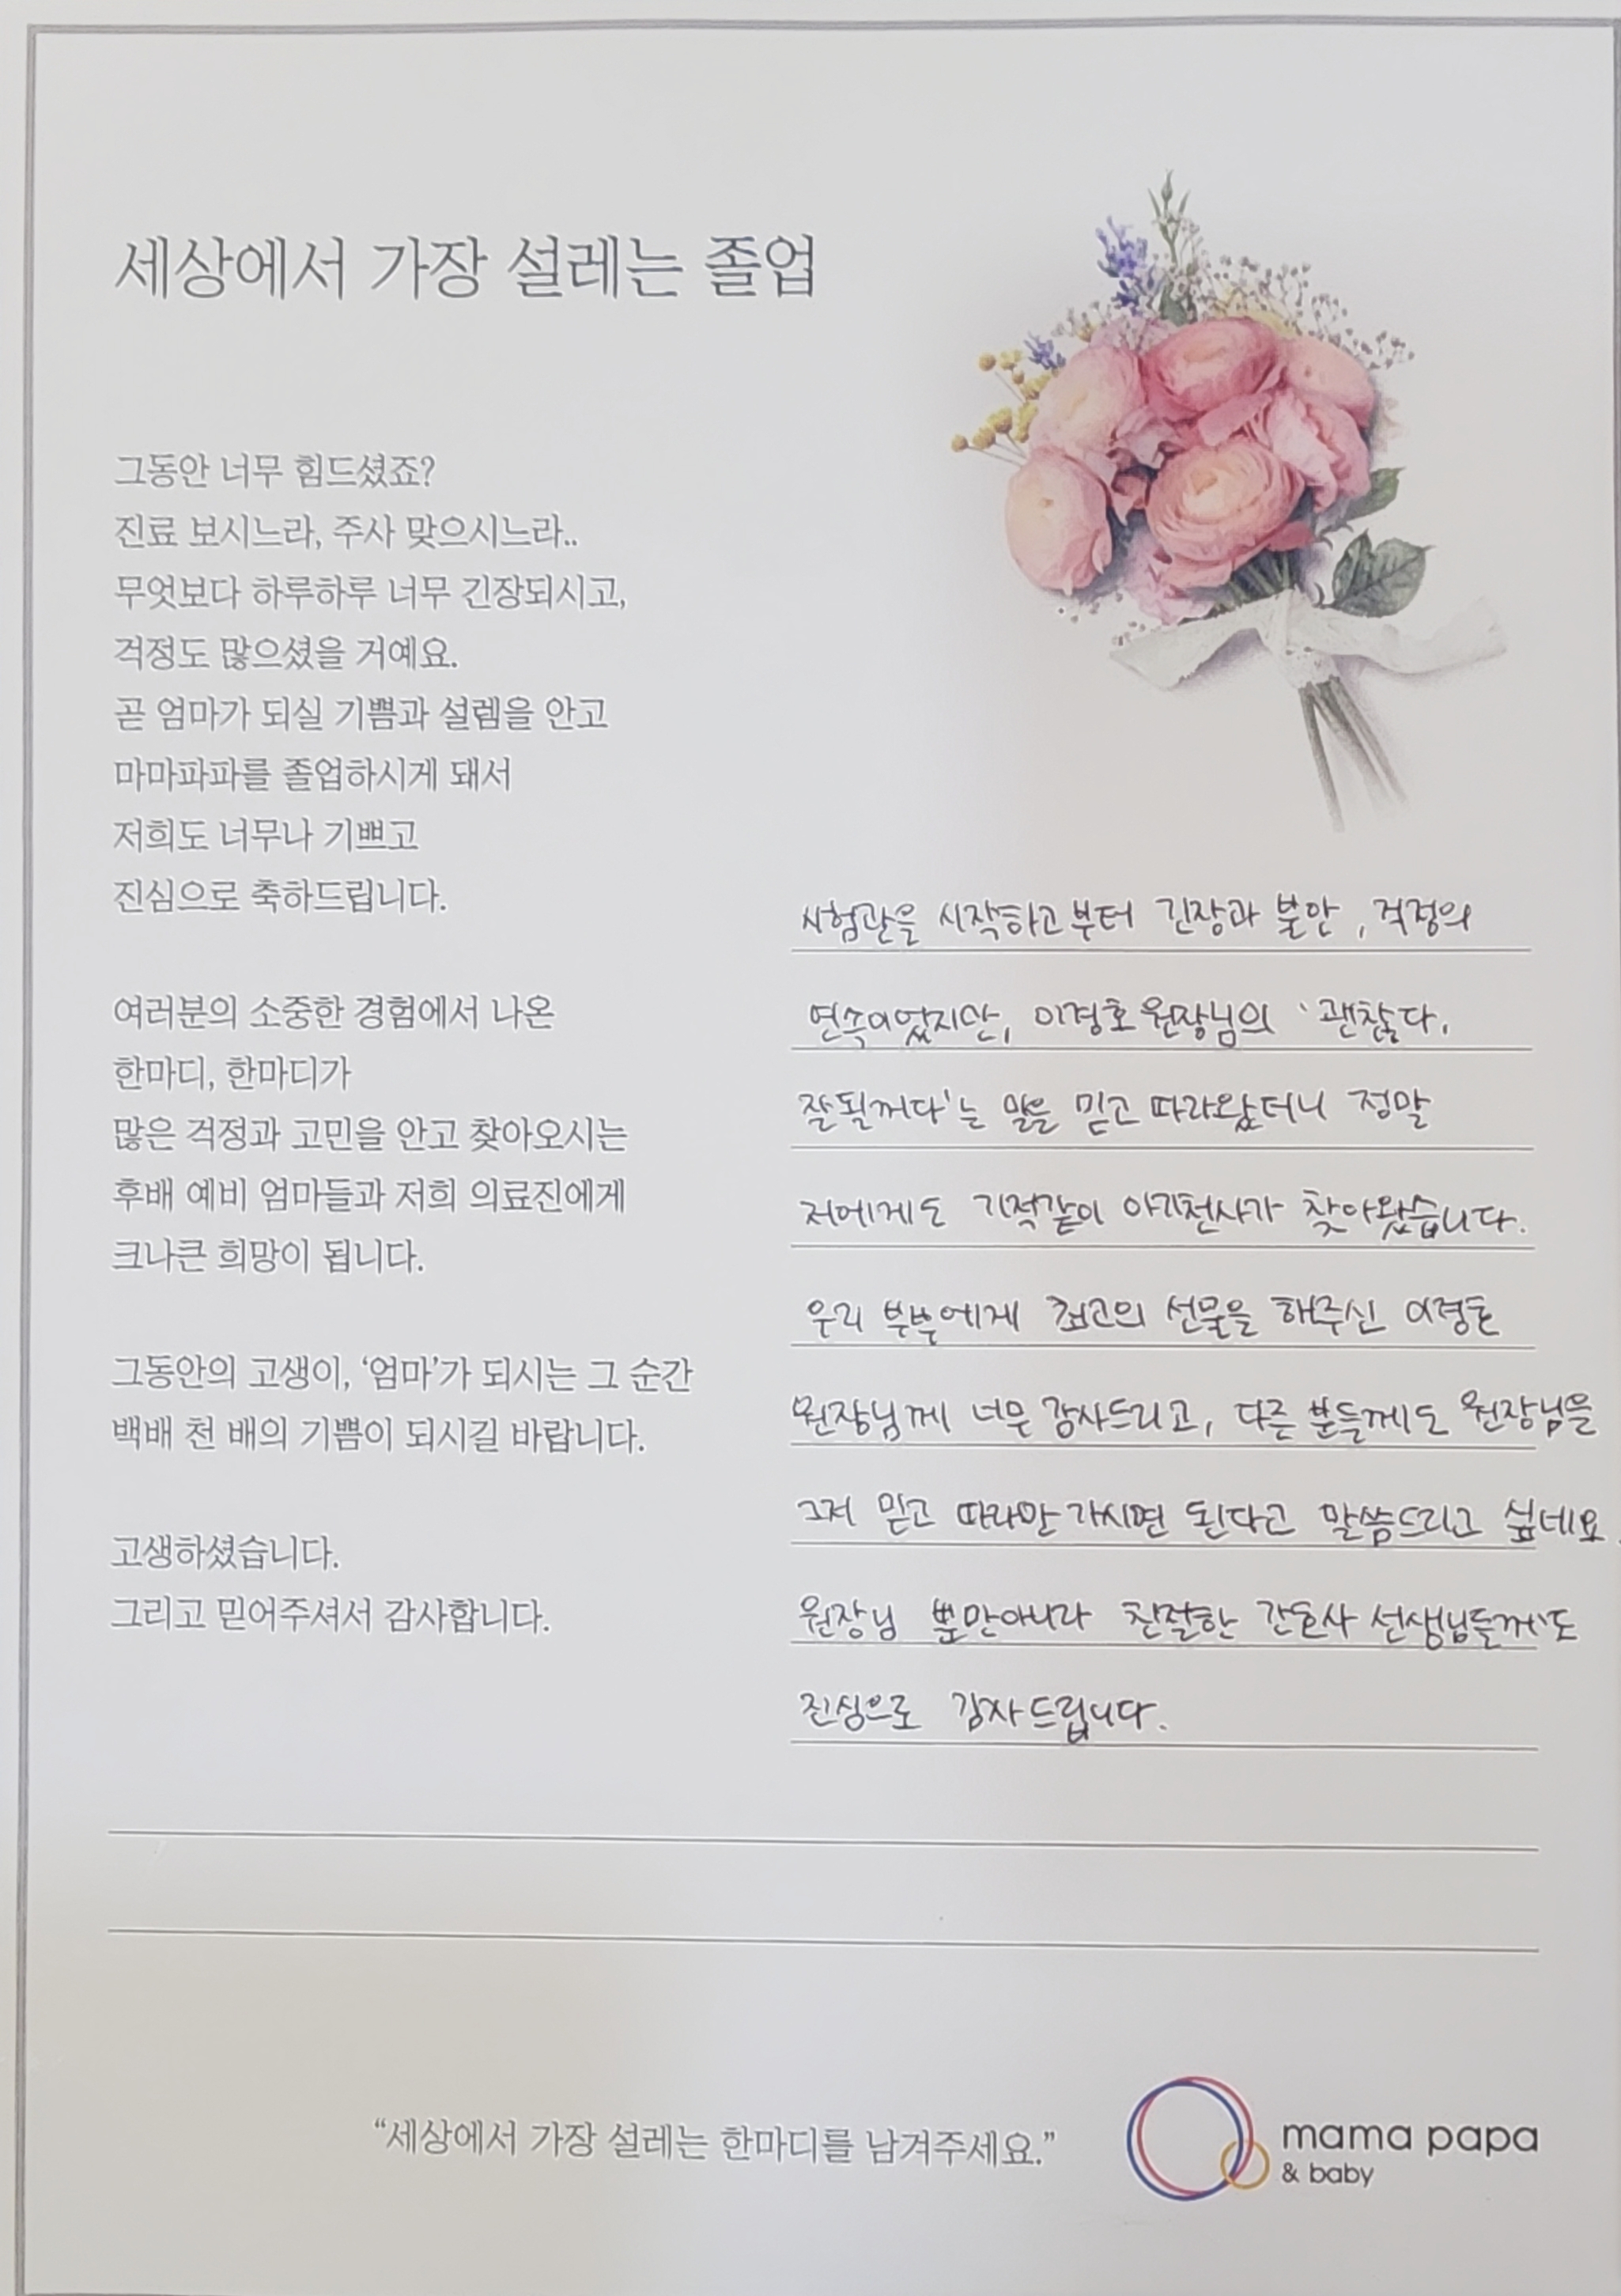 세상에서 가장 설레는 졸업
그동안 너무 힘드셨죠?
진료 보시느라, 주사 맞으시느라..
무엇보다 하루하루 너무 긴장되시고,
걱정도 많으셨을 거예요.
곧 엄마가 되실 기쁨과 설렘을 안고
마마파파를 졸업하시게 돼서
저희도 너무나 기쁘고
진심으로 축하드립니다.
여러분의 소중한 경험에서 나온
한마디, 한마디가
많은 걱정과 고민을 안고 찾아오시는
후배 예비 엄마들과 저희 의료진에게
크나큰 희망이 됩니다.
그동안의 고생이, ‘엄마’가 되시는 그 순간
백배 천 배의 기쁨이 되시길 바랍니다.
고생하셨습니다.
그리고 믿어주셔서 감사합니다.
시험관을 시작하고부터 긴장과 불안, 걱정의
연속이었지만, 이경호 원장님의 '괜찮다,
잘될꺼다'는 말을 믿고 따라왔더니 정말
저에게도 기적같이 아기천사가 찾아왔습니다.
우리 부부에게 최고의 선물을 해주신 이경호
원장님께 너무 감사드리고, 다른 분들께도 원장님을
그저 믿고 따라만 가시면 된다고 말씀드리고 싶네요.
원장님 뿐만아니라 친절한 간호사 선생님들께도
진심으로 감사드립니다.
“세상에서 가장 설레는 한마디를 남겨주세요.”
mama papa
& baby